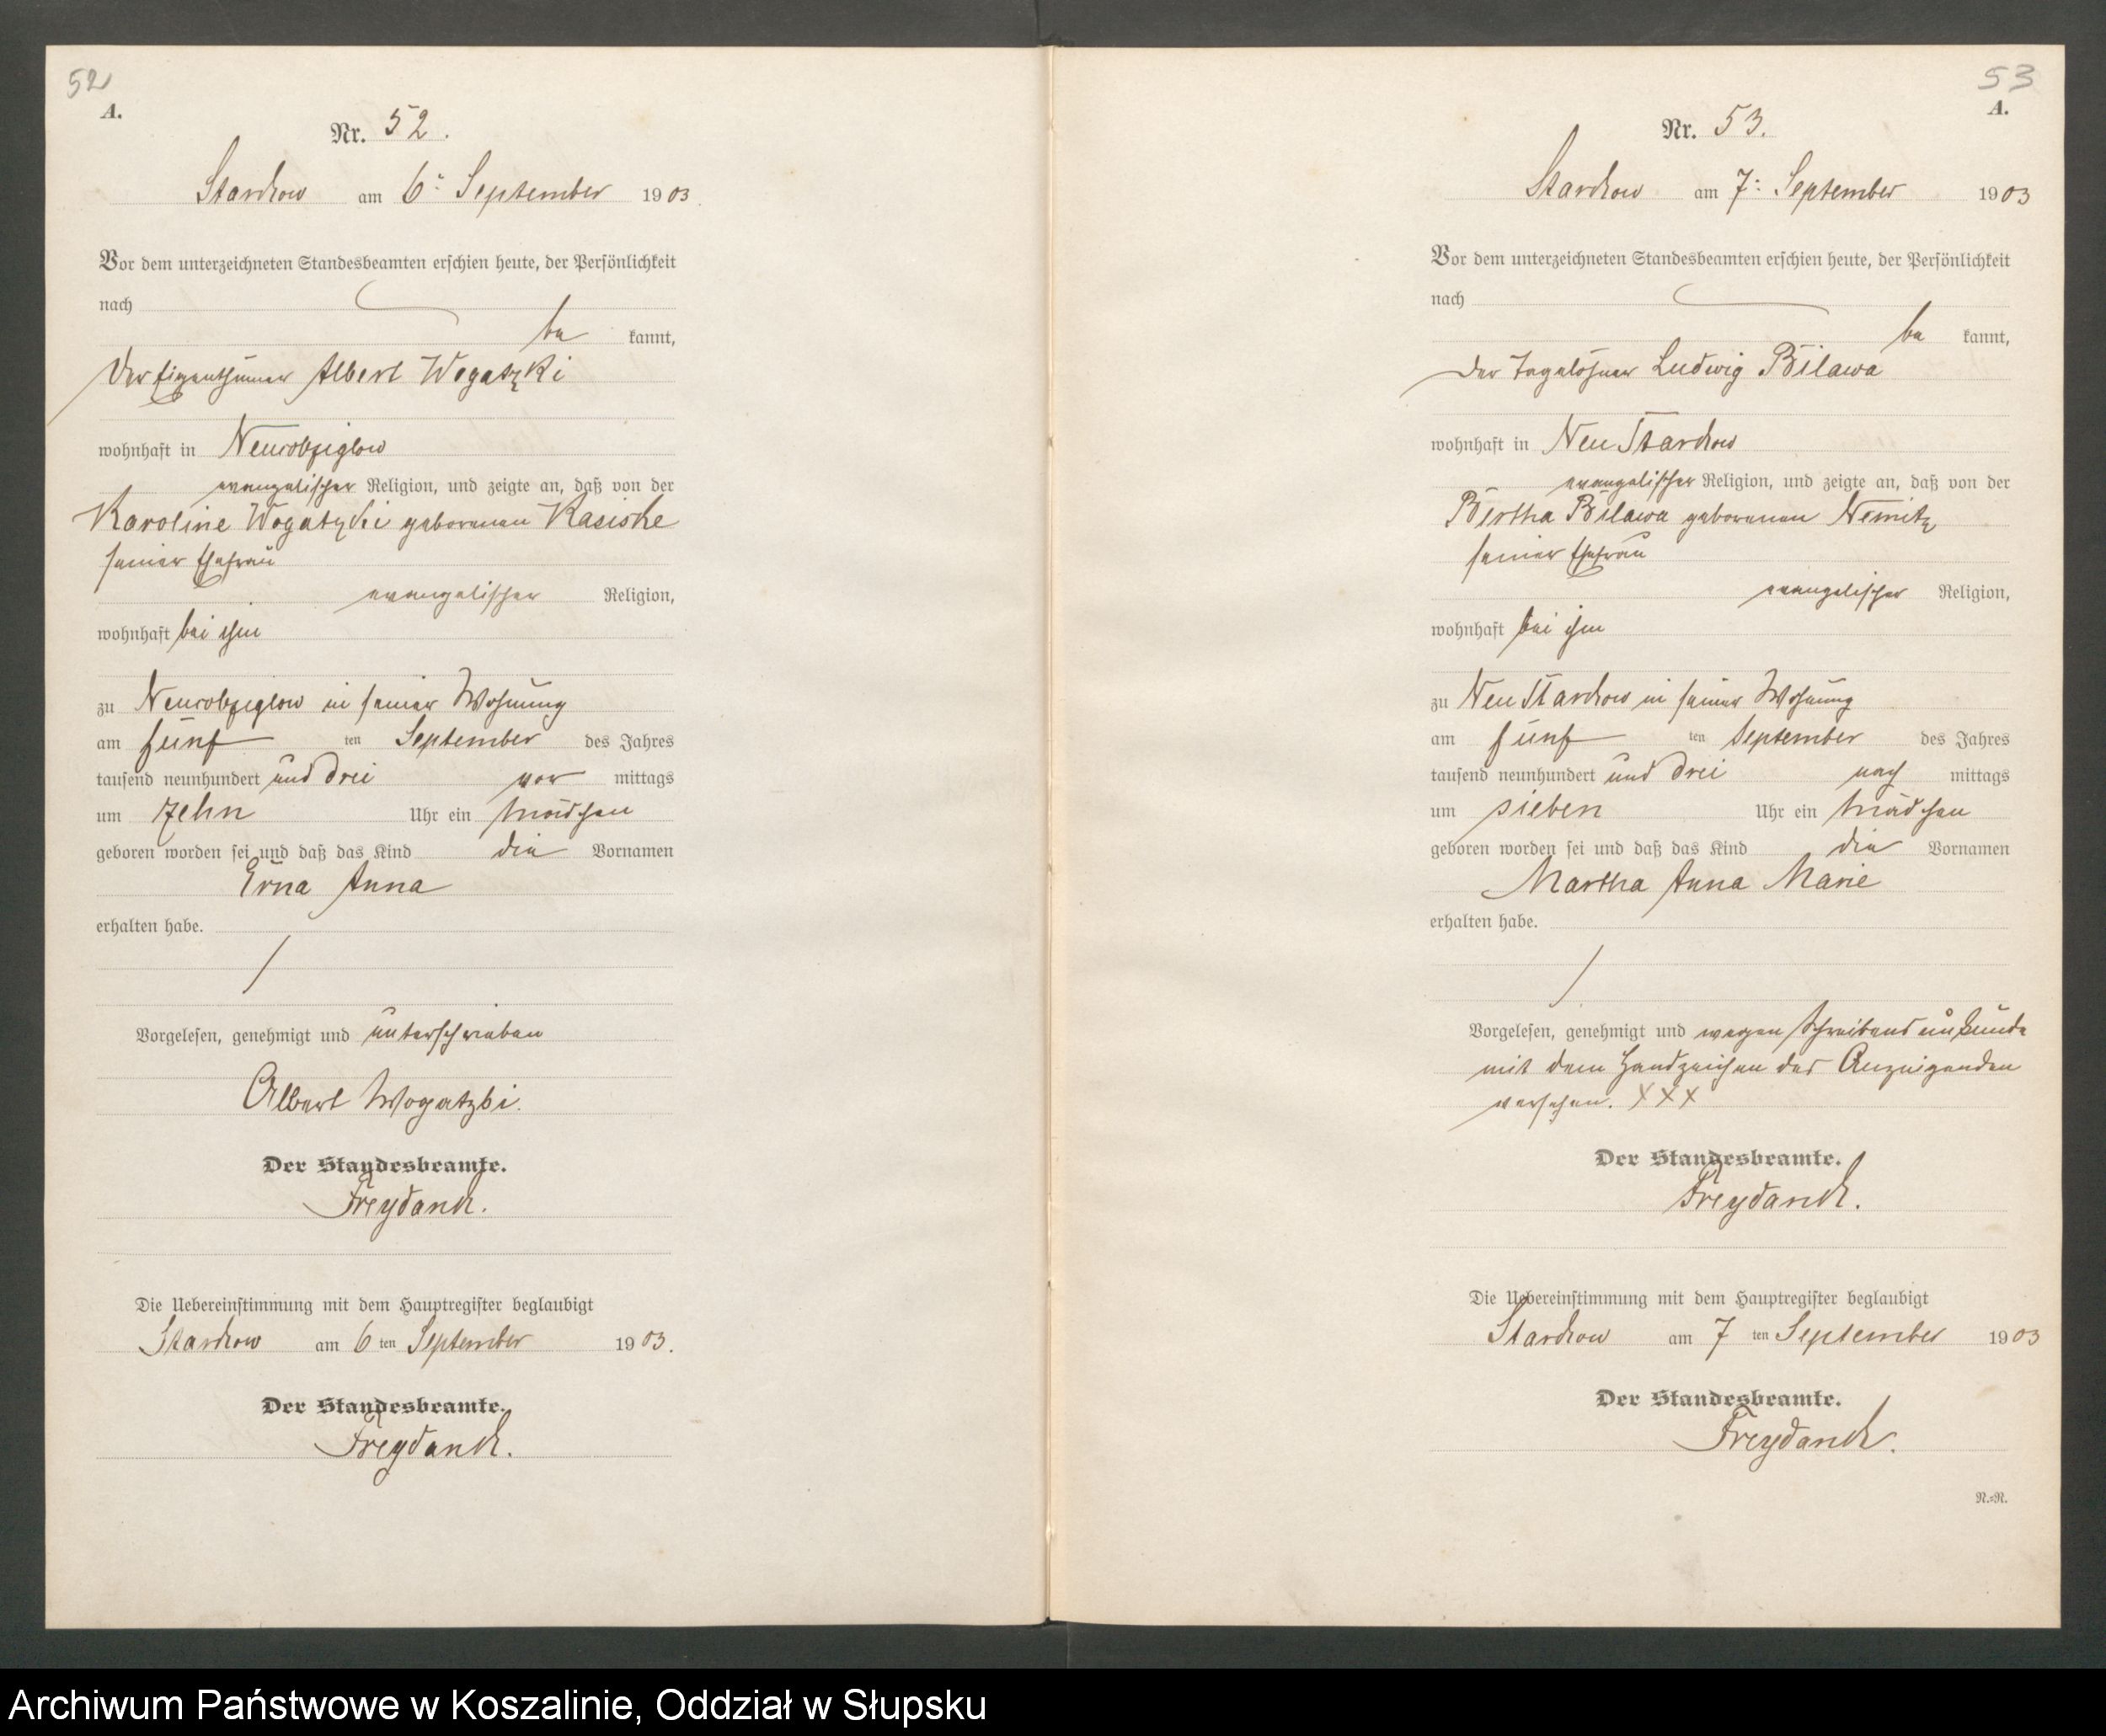 52
A.
Nr. 52.
Starckow am 6ᵗ September 1903.
Vor dem unterzeichneten Standesbeamten erschien heute, der Persönlichkeit
nach
be kannt,
Der Eigenthümer Albert Wogatzki
wohnhaft in
evangelischer Religion, und zeigte an, daß von der
Karoline Wogatzki geborenen Kasiske
seiner Ehefrau
evangelischer Religion,
wohnhaft bei ihm
zu in seiner Wohnung
am fünf ten September des Jahres
tausend neunhundert und drei vor mittags
um zehn Uhr ein Mädchen
geboren worden sei und daß das Kind die Vornamen
Erna Anna
erhalten habe.
Vorgelesen, genehmigt und unterschrieben
Albert Wogatzki.
Der Standesbeamte.
Freydanck.
Die Uebereinstimmung mit dem Hauptregister beglaubigt
Starckow am 6 ten September 1903.
Der Standesbeamte.
Freydanck.
53
A.
Nr. 53.
Starckow am 7ᵗ September 1903
Vor dem unterzeichneten Standesbeamten erschien heute, der Persönlichkeit
nach
be kannt,
Der Tagelöhner Ludwig Bilawa
wohnhaft in Neu Starckow
evangelischer Religion, und zeigte an, daß von der
Bertha Bilawa geborenen Nemitz
seiner Ehefrau
evangelischer Religion,
wohnhaft bei ihm
zu Neu Starckow in seiner Wohnung
am fünf ten September des Jahres
tausend neunhundert und drei nach mittags
um sieben Uhr ein Mädchen
geboren worden sei und daß das Kind die Vornamen
Martha Anna Marie
erhalten habe.
Vorgelesen, genehmigt und wegen Schreibensunkunde
mit dem Handzeichen des Anzeigenden
versehen. XXX
Der Standesbeamte.
Freydanck.
Die Uebereinstimmung mit dem Hauptregister beglaubigt
Starckow am 7 ten September 1903
Der Standesbeamte.
Freydanck.
N.=N.
Archiwum Państwowe w Koszalinie, Oddział w Słupsku